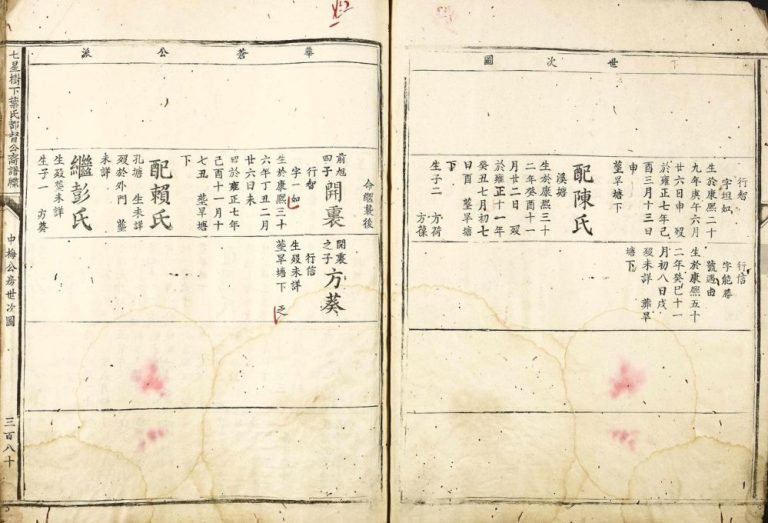 世次圖
行智
字坦如
生於康熙二十
九年庚午六月
廿六日申 歿
於雍正七年己
酉三月十三日
申
葬旱塘下
配陳氏
溪塘
生於康熙三十
二年癸酉十一
月廿二日 歿
於雍正十一年
癸丑七月初七
日酉 葬旱塘
下
生子二 方荷
方葆
行信
字能勝
號遇由
生於康熙五十
二年癸巳十一
月初八日戌
歿未詳 葬旱
塘下
華蒼公派
命繼裴後
前旭
四子
開裏
行智
字一如
生於康熙三十
六年丁丑二月
廿六日未 歿
於雍正七年
己酉十一月十
七丑 葬旱塘
下
配賴氏
孔塘 生未詳
歿於外門 葬
未詳
繼彭氏
生歿葬未詳
生子一 方葵
開裏
之子
方葵
行信
生歿未詳
葬旱塘下 乏
七星樹下葉氏都督公裔譜牒
申梅公房世次圖
三百八十